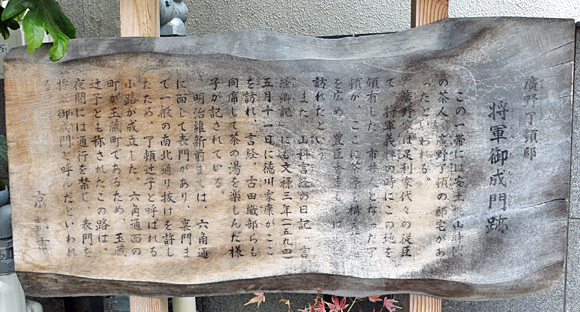 廣野了頓邸
将軍御成門跡
この一帯には安土桃山時代
の茶人・廣野了頓の邸宅があ
ったといわれる。
廣野家は足利家代々の従臣
で、将軍義 の時にこの地を
領有した。市井人となった了
頓が、ここに茶亭を構え茶道
を広め、豊臣秀吉も
訪れたという。
また、山科言経の日記「言
経卿記」にも文禄三年(一五九四)
五月十一日に徳川家康がここ
を訪れ、言経、古田織部らも
同席して茶の湯を楽しんだ様
子が記されている。
明治維新前までは、六角通
に面して表門があり、裏門ま
で一般の南北通り抜けを許し
たため、了頓辻子と呼ばれる
小路が成立した。六角通面の
町が玉蔵町であるため、玉蔵
辻子とも称されたこの路は、
夜間には通行を禁じ、表門を
将軍御成門と呼んだといわれ
る。
京都市